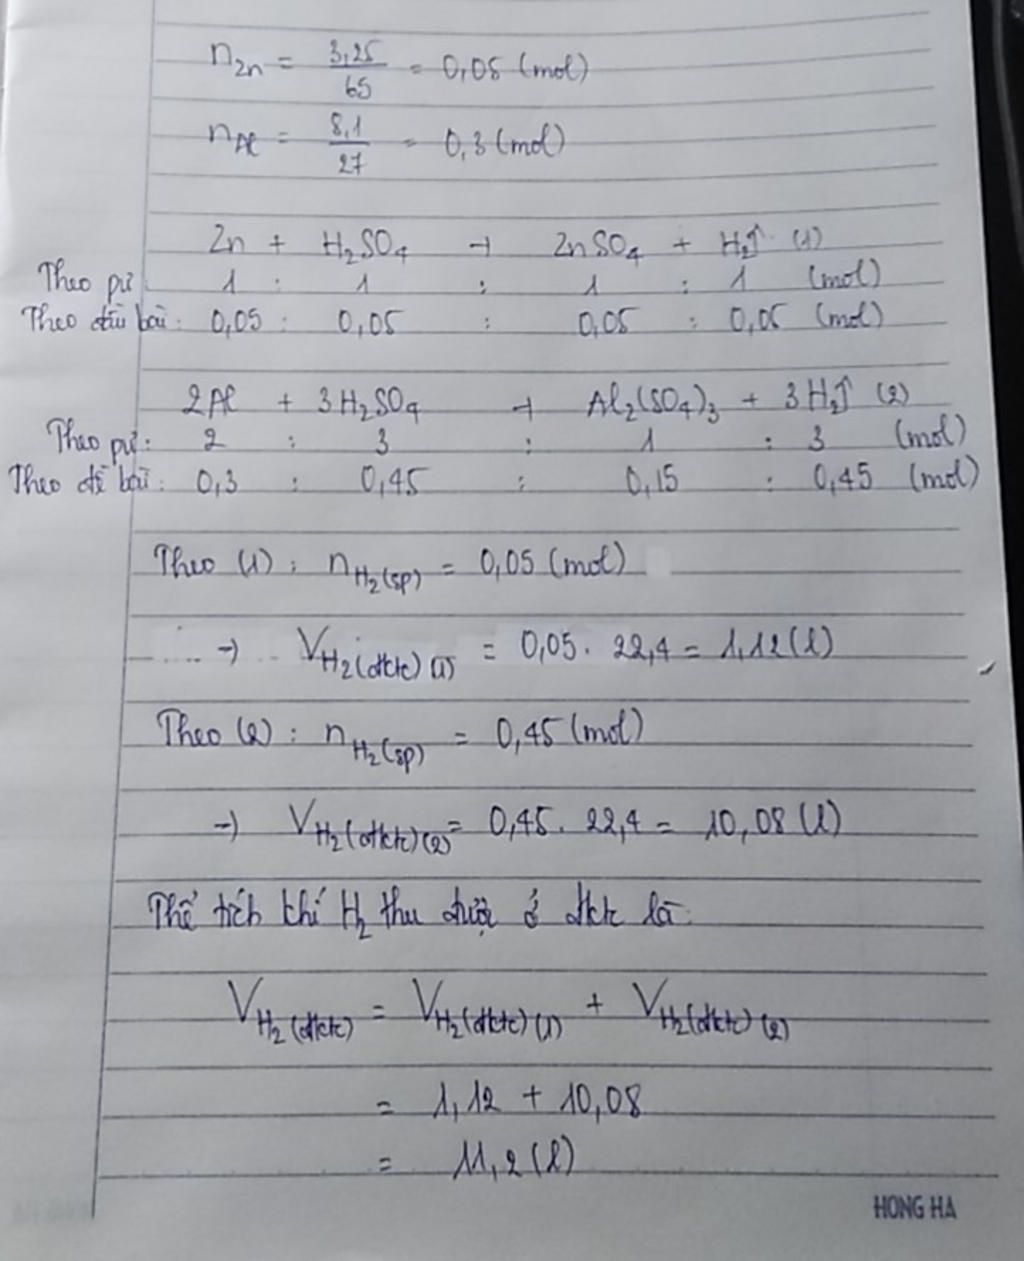 n Zn = 3,25 / 65 = 0,05 (mol)
n Al = 8,1 / 27 = 0,3 (mol)
Zn + H₂SO₄ → ZnSO₄ + H₂↑ (1)
Theo pứ 1 : 1 : 1 : 1 (mol)
Theo đầu bài: 0,05 : 0,05 : 0,05 : 0,05 (mol)
2Al + 3H₂SO₄ → Al₂(SO₄)₃ + 3H₂↑ (2)
Theo pứ: 2 : 3 : 1 : 3 (mol)
Theo đề bài: 0,3 : 0,45 : 0,15 : 0,45 (mol)
Theo (1): n H₂(sp) = 0,05 (mol)
→ V H₂(đktc) (1) = 0,05. 22,4 = 1,12 (l)
Theo (2): n H₂(sp) = 0,45 (mol)
→ V H₂(đktc) (2) = 0,45. 22,4 = 10,08 (l)
Thể tích khí H₂ thu được ở đktc là:
V H₂(đktc) = V H₂(đktc) (1) + V H₂(đktc) (2)
= 1,12 + 10,08
= 11,2 (l)
HONG HA